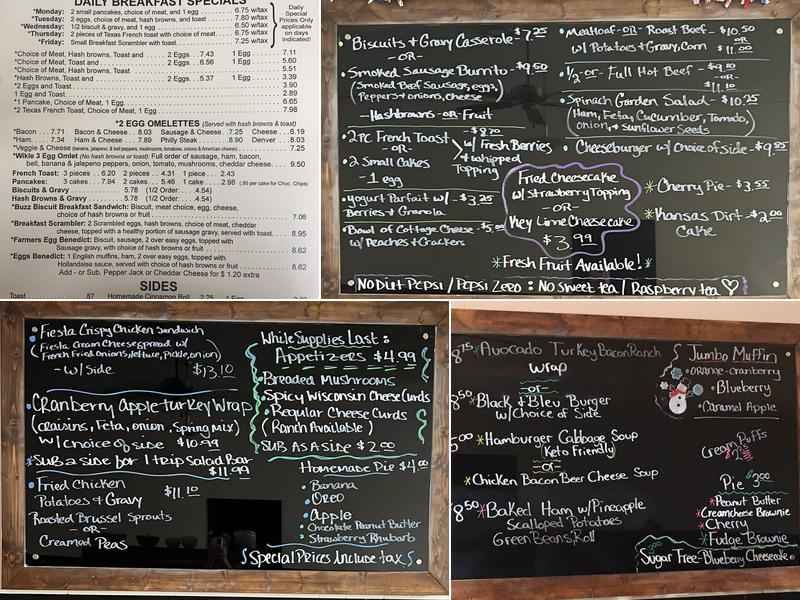 DAILY BREAKFAST SPECIALS
*Monday: 2 small pancakes, choice of meat, and 1 egg 6.75 w/tax
*Tuesday: 2 eggs, choice of meat, hash browns, and toast 7.80 w/tax
*Wednesday: 1/2 biscuit & gravy, and 1 egg 6.50 w/tax
*Thursday: 2 pieces of Texas French toast with choice of meat 6.75 w/tax
*Friday: Small Breakfast Scrambler with toast. 7.25 w/tax
Daily
Special
Prices Only
applicable
on days
indicated!
*Choice of Meat, Hash Browns, Toast and 2 Eggs 7.43 1 Egg 7.11
*Choice of Meat, Toast and 2 Eggs 6.56 1 Egg 5.60
*Choice of Meat, Hash Browns, Toast 5.51
*Hash Browns, Toast and 2 Eggs 5.37 1 Egg 3.39
*2 Eggs and Toast 3.90
1 Egg and Toast 2.89
*1 Pancake, Choice of Meat, 1 Egg 6.65
*2 Texas French Toast, Choice of Meat, 1 Egg 7.98
*2 EGG OMELETTES (Served with hash browns & toast)
*Bacon 7.71 Bacon & Cheese 8.03 Sausage & Cheese 7.25 Cheese 6.19
*Ham 7.34 Ham & Cheese 7.89 Philly Steak 8.90 Denver 8.03
*Veggie & Cheese (banana, jalapeno, & bell peppers, mushrooms, tomatoes, onions & American cheese) 7.25
*Wikle 3 Egg Omlet (No hash browns or toast) Full order of sausage, ham, bacon,
bell, banana & jalapeno peppers, onion, tomato, mushrooms, cheddar cheese 9.50
French Toast: 3 pieces 6.20 2 pieces 4.31 1 piece 2.43
Pancakes: 3 cakes 7.94 2 cakes 5.46 1 cake 2.98 (.50 per cake for Choc. Chips)
Biscuits & Gravy 5.78 (1/2 Order: 4.54)
Hash Browns & Gravy 5.78 (1/2 Order: 4.54)
*Buzz Biscuit Breakfast Sandwich: Biscuit, meat choice, egg, cheese,
choice of hash browns or fruit 7.06
*Breakfast Scrambler: 2 Scrambled eggs, hash browns, choice of meat, cheddar
cheese, topped with a healthy portion of sausage gravy, served with toast 8.95
*Farmers Egg Benedict: Biscuit, sausage, 2 over easy eggs, topped with
Sausage gravy, with choice of hash browns or fruit 8.62
*Eggs Benedict: 1 English muffins, ham, 2 over easy eggs, topped with
Hollandaise sauce, served with choice of hash browns or fruit 8.62
Add - or Sub. Pepper Jack or Cheddar Cheese for $ 1.20 extra
SIDES
Toast .87 Homemade Cinnamon Roll 2.75 1 Egg
Biscuits & Gravy Casserole - $7.25
-OR-
Smoked Sausage Burrito - $9.50
(Smoked Beef Sausage, eggs,
Peppers & onions, cheese)
-Hashbrowns -OR- Fruit
2 pc French Toast - $8.70
-OR-
2 Small Cakes
-1 egg
w/ Fresh Berries
& whipped
Topping
yogurt Parfait w/ - $3.25
Berries & Granola
Bowl of Cottage Cheese - $5.00
w/ Peaches & Crackers
Meatloaf -OR- Roast Beef - $10.50
w/ Potatoes & Gravy, Corn $11.00
1/2 -or- Full Hot Beef - $9.10
-OR-
$11.10
Spinach Garden Salad - $10.25
(Ham, Feta, Cucumber, Tomato,
Onion, & Sunflower Seeds)
Cheeseburger w/ choice of side - $9.85
Fried Cheesecake
w/ Strawberry Topping
-OR-
Key Lime Cheesecake
$3.99
*Cherry Pie - $3.55
*Kansas Dirt - $2.00
Cake
*Fresh Fruit Available!*
No Diet Pepsi / Pepsi Zero : No Sweet tea / Raspberry tea ♡
Fiesta Crispy Chicken Sandwich
(Fiesta Cream Cheese spread w/
French Fried onions, lettuce, Pickle, onion)
- w/ Side $13.10
Cranberry Apple turkey Wrap
(craisins, Feta, onion, Spring Mix)
w/ choice of side $10.99
*Sub a side for 1 trip Salad Bar
$11.99
Fried Chicken $11.10
Potatoes & Gravy
Roasted Brussel Sprouts
-OR-
Creamed Peas
While Supplies Last:
Appetizers $4.99
Breaded Mushrooms
Spicy Wisconsin Cheese Curds
Regular Cheese Curds
(Ranch Available)
SUB AS A SIDE $2.00
Homemade Pie $4.00
Banana
Oreo
Apple
Chocolate Peanut Butter
Strawberry Rhubarb
Special Prices Include tax
8.75 *Avocado Turkey Bacon Ranch
Wrap
-or-
8.50 *Black & Bleu Burger
w/ Choice of Side
5.00 *Hamburger Cabbage Soup
(Keto Friendly)
-or-
*Chicken Bacon Beer Cheese Soup
8.50 *Baked Ham w/ Pineapple
Scalloped Potatoes
Green Beans, Roll
Jumbo Muffin
orange-cranberry
Blueberry
Caramel Apple
Cream Puffs
Pie 3.00
*Peanut Butter
*Creamcheese Brownie
*Cherry
*Fudge Brownie
Sugar Free-Blueberry Cheesecake